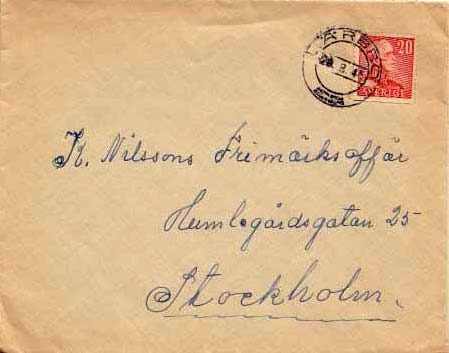 LÄRBRO
20
28.3.45
SVERIGE
K. Nilssons Frimärksaffär
Humlegårdsgatan 25
Stockholm.